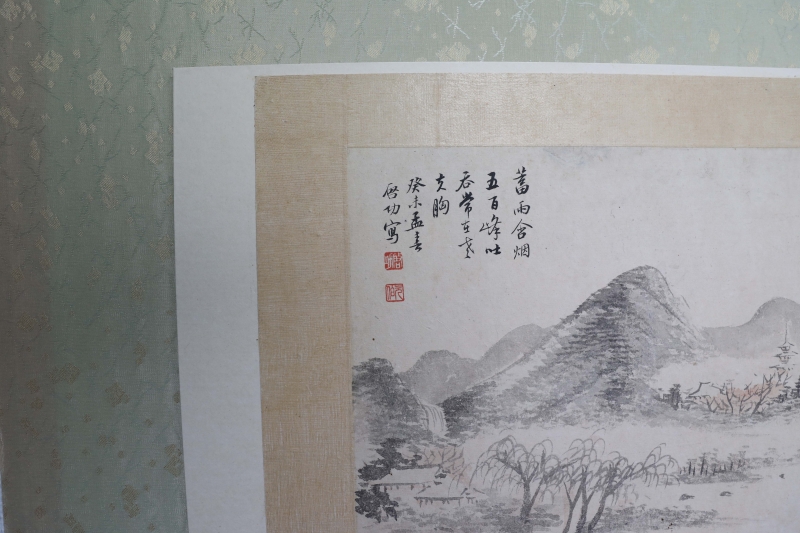 蓄雨含烟
五百峰吐
吞常在老
夫胸
癸未孟春
启功写